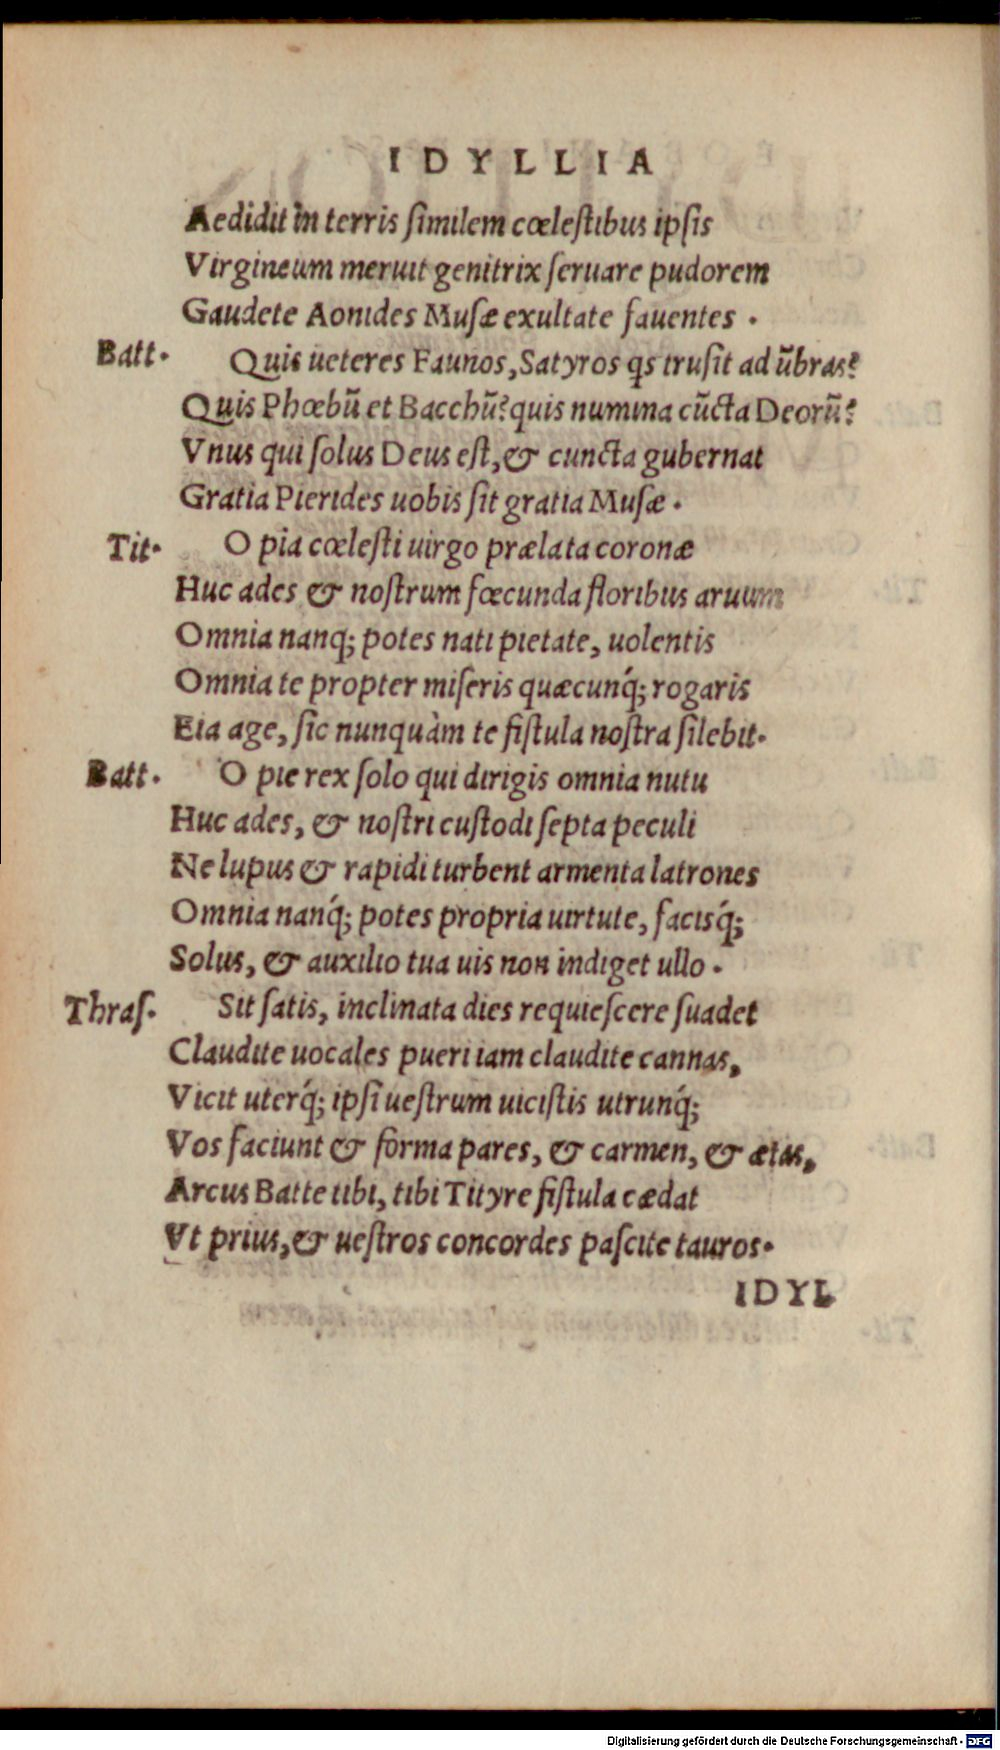 IDYLLIA
Aedidit in terris ſimilem cœleſtibus ipſis
Virgineum meruit genitrix ſeruare pudorem
Gaudete Aonides Muſæ exultate fauentes .
Batt. Quis ueteres Faunos, Satyros qs truſit ad ũbras?
Quis Phœbũ et Bacchũ? quis numina cũcta Deorũ?
Vnus qui ſolus Deus eſt, & cuncta gubernat
Gratia Pierides uobis ſit gratia Muſæ .
Tit. O pia cœleſti uirgo prælata coronæ
Huc ades & noſtrum fœcunda floribus aruum
Omnia nanq; potes nati pietate, uolentis
Omnia te propter miſeris quæcunq́; rogaris
Eia age, ſic nunquàm te fiſtula noſtra ſilebit.
Batt. O pie rex ſolo qui dirigis omnia nutu
Huc ades, & noſtri cuſtodi ſepta peculi
Ne lupus & rapidi turbent armenta latrones
Omnia nanq́; potes propria uirtute, facisq́;
Solus, & auxilio tua uis non indiget ullo .
Thraſ. Sit ſatis, inclinata dies requieſcere ſuadet
Claudite uocales pueri iam claudite cannas,
Vicit uterq́; ipſi ueſtrum uiciſtis utrunq́;
Vos faciunt & forma pares, & carmen, & ætas,
Arcus Batte tibi, tibi Tityre fiſtula cædat
Vt prius, & ueſtros concordes paſcite tauros.
IDYL
Digitalisierung gefördert durch die Deutsche Forschungsgemeinschaft - DFG